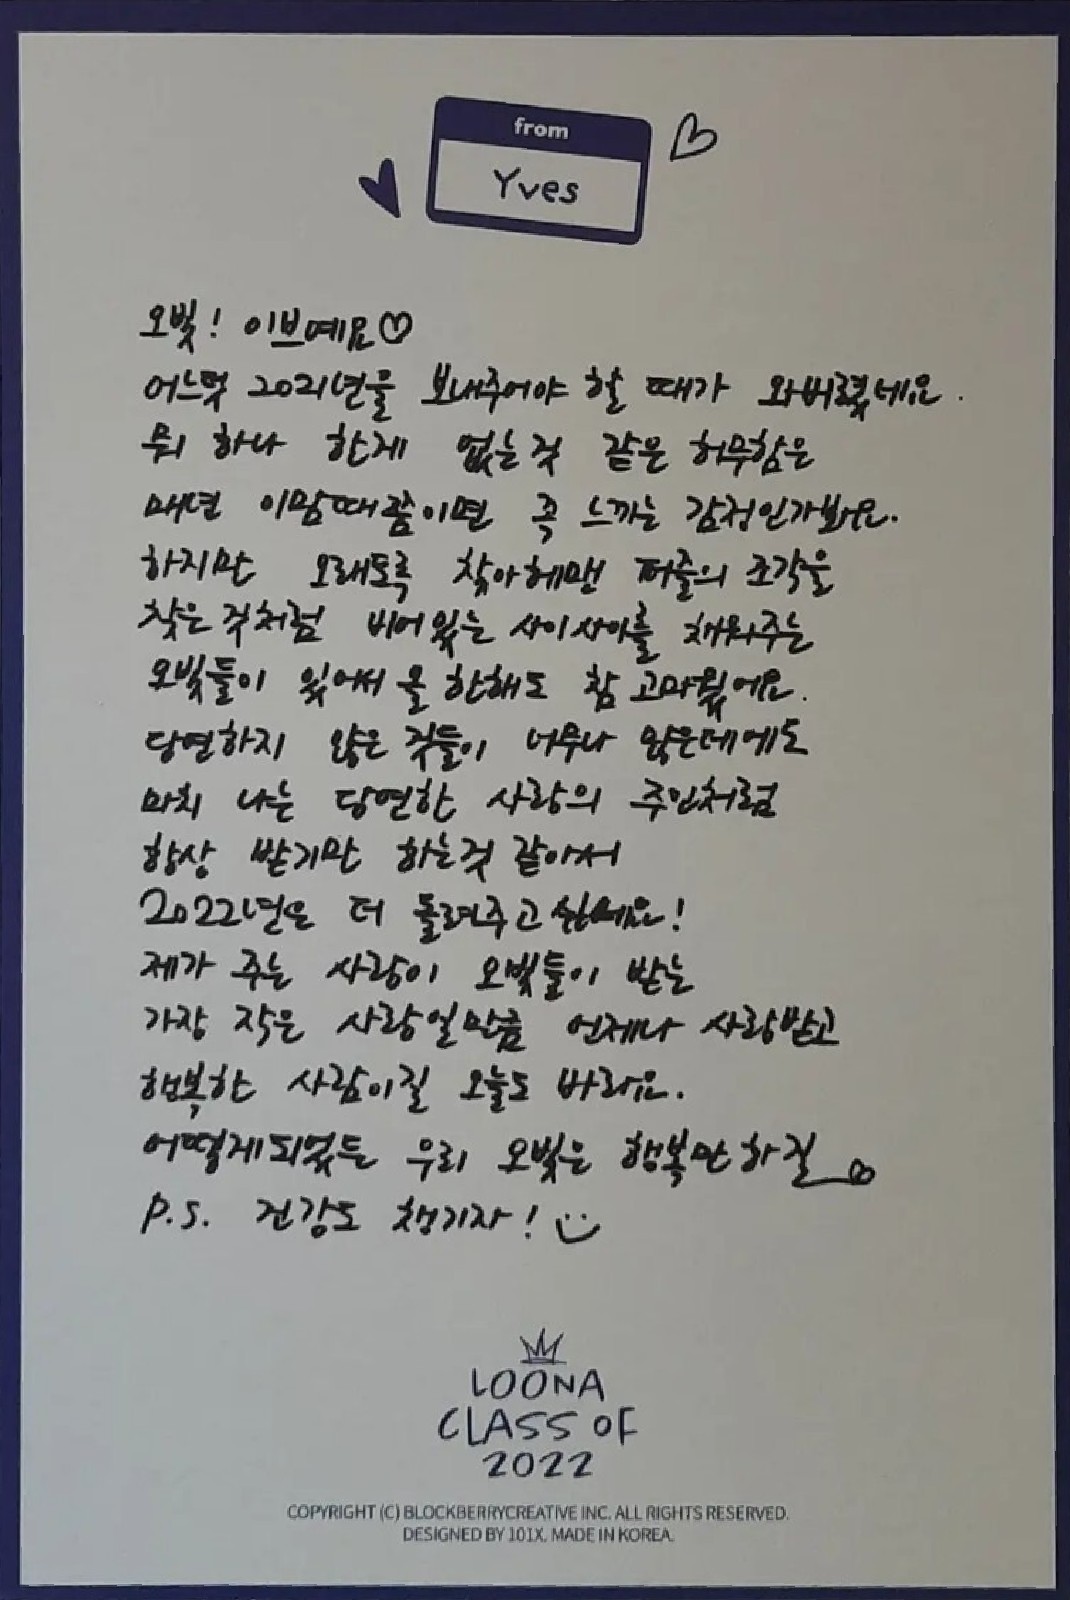 from
Yves
오빛! 이브예요♡
어느덧 2021년을 보내주어야 할 때가 와버렸네요.
뭐 하나 한게 없는것 같은 허무함은
매년 이맘때쯤이면 꼭 느끼는 감정인가봐요.
하지만 오래도록 찾아헤맨 퍼즐의 조각을
찾은 것처럼 비어있는 사이사이를 채워주는
오빛들이 있어서 올 한해도 참 고마웠어요.
당연하지 않은 것들이 너무나 많은데에도
마치 나는 당연한 사랑의 주인처럼
항상 받기만 하는것 같아서
2022년은 더 돌려주고 싶네요!
제가 주는 사랑이 오빛들이 받는
가장 작은 사랑일만큼 언제나 사랑받고
행복한 사람이길 오늘도 바라요.
어떻게되었든 우리 오빛은 행복만하길
P.S. 건강도 챙기자! :)
LOONA
CLASS OF
2022
COPYRIGHT (C) BLOCKBERRYCREATIVE INC. ALL RIGHTS RESERVED.
DESIGNED BY 101X. MADE IN KOREA.